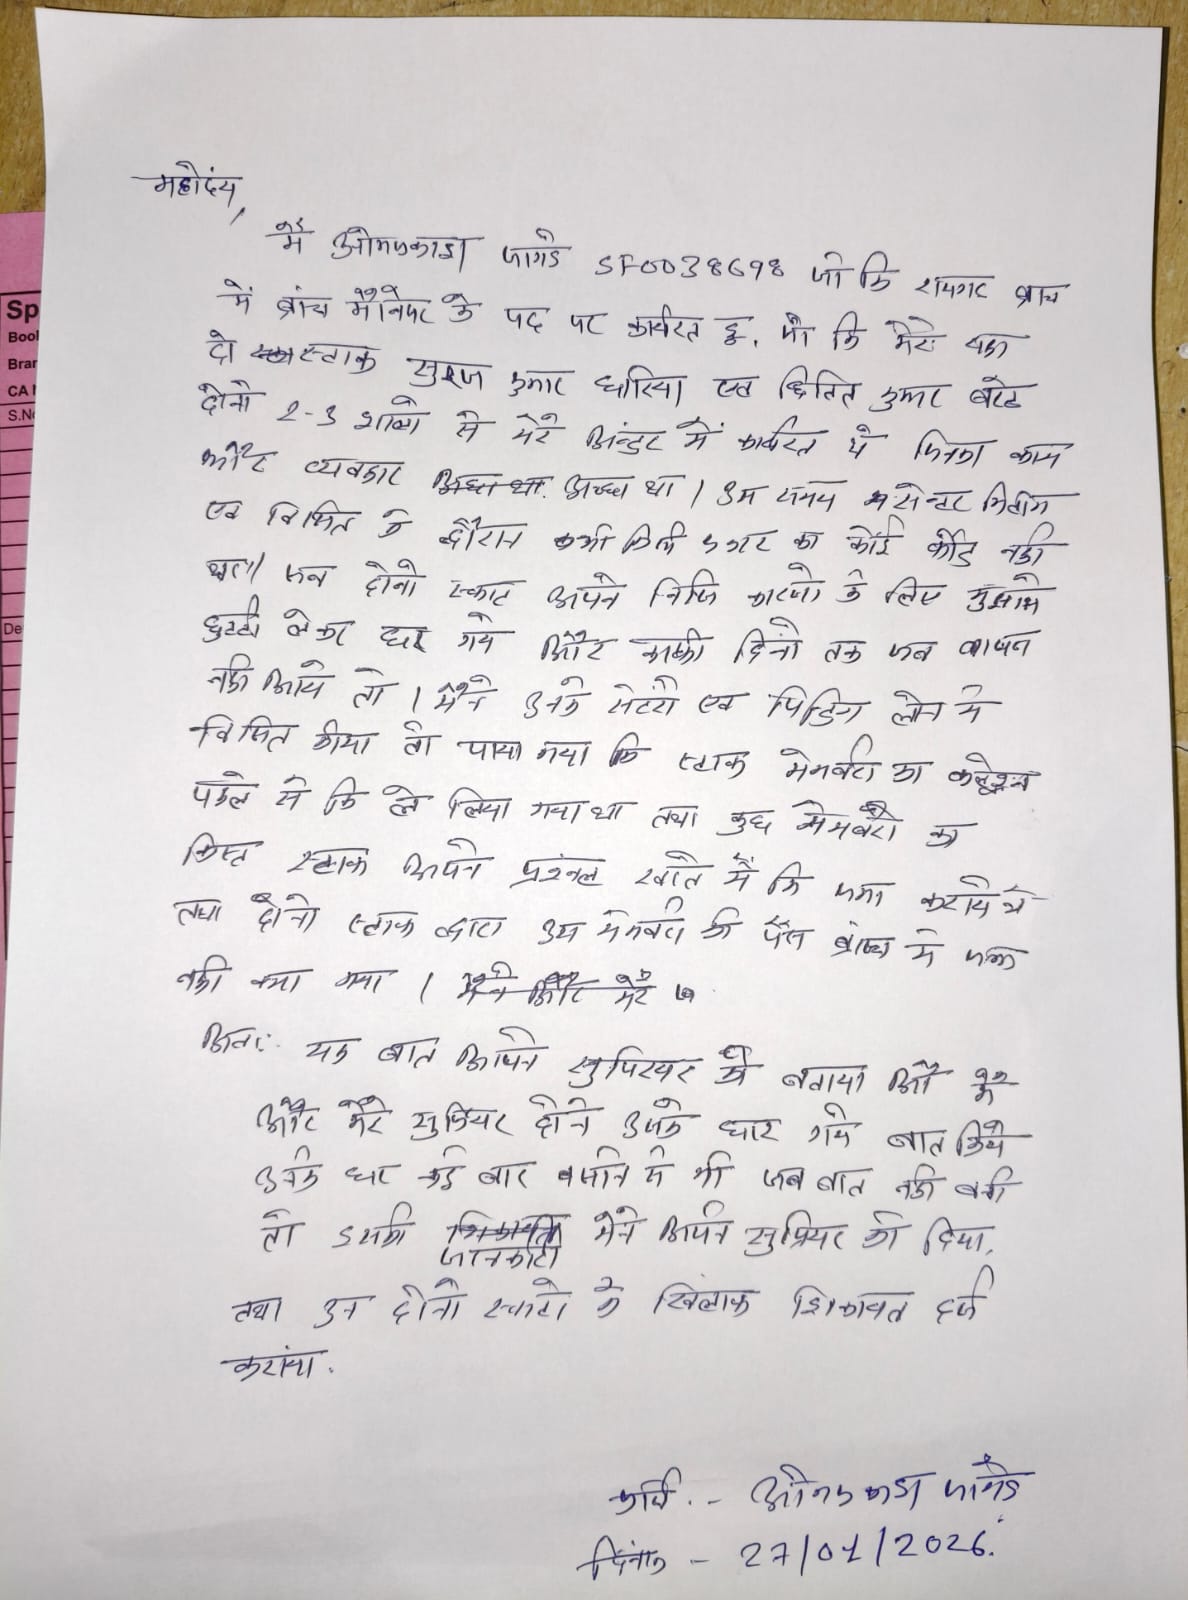 महोदंय,
मैं ओमप्रकाश जांगडे SF0038698 जो कि रायगढ ब्रांच
में ब्रांच मैनेजर के पद पर कार्यरत हू. जो कि मेरे यहा
दो स्टाफ सुरज कुमार धारिया एवं क्षितिज कुमार बरेठ
दोनो 2-3 शालो से मेरे अंन्डर में कार्यरत थे जिनका काम
और व्यवहार अच्छा था। उस समय सेन्टर मिटींग
एवं विजिट के दौरान कभी किसी प्रकार का कोई फ्रॉड नही
था। जब दोनो स्टाफ अपने निजि कारणो के लिए मुझसे
छुट्टी लेकर घर गये और काफी दिनो तक जब वापस
नही आये तो। मैने उनके सेंटरो एवं पेंडिंग लोन में
विजिट कीया तो पाया गया कि स्टाफ मेम्बरो का कलेक्शन
पहले से कि ले लिया गया था तथा कुछ मेम्बरो का
किस्त स्टाफ अपने प्रर्सनल खाते में कि जमा कराये थे
तथा दोनो स्टाफ द्वारा उस मेम्बरो की पैसा ब्रांच में जमा
नही क्या गया।
अतः यह बात अपने सुपिरयर को बताया
और मेरे सुपियर दोनो उनके घार गये बात किये
उनके घर कई बार विजिट में भी जब बात नही बनी
तो इसकी जानकारी मैने अपने सुप्रियर को दिया,
तथा उन दोनो स्टाफो के खिलाफ शिकायत दर्ज
कराया.
प्रार्थी. - ओमप्रकाश जांगडे
दिनांक - 27/01/2026.